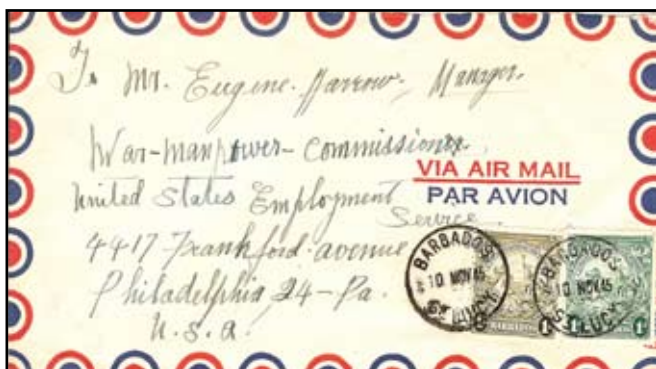 To Mr. Eugene. Marrow, Manager.
War-manpower-commissioner.
United States Employment
Service.
4417 Frankford avenue
Philadelphia 24-Pa.
U.S.a.
VIA AIR MAIL
PAR AVION
BARBADOS
10 NOV 45
ST LUCY
BARBADOS
10 NOV 45
ST LUCY
BARBADOS